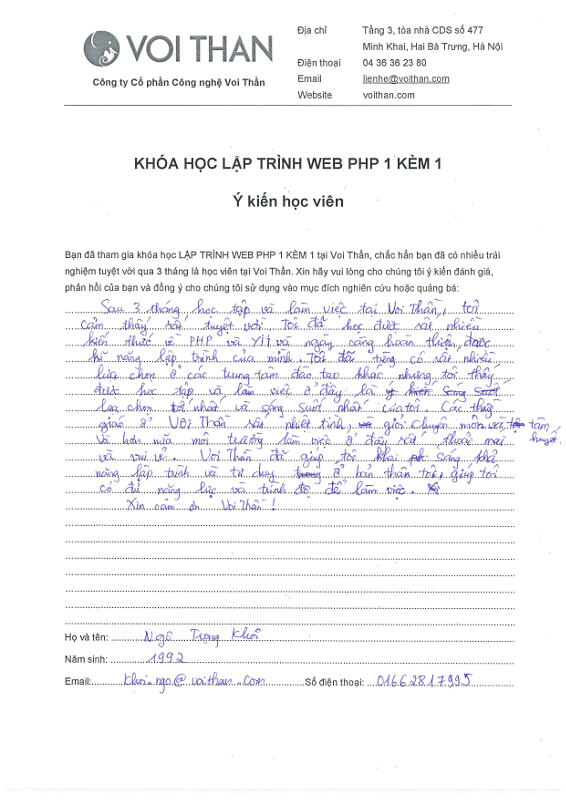 VOI THAN
Công ty Cổ phần Công nghệ Voi Thần
Địa chỉ Tầng 3, tòa nhà CDS số 477
Minh Khai, Hai Bà Trưng, Hà Nội
Điện thoại 04 36 36 23 80
Email lienhe@voithan.com
Website voithan.com
KHÓA HỌC LẬP TRÌNH WEB PHP 1 KÈM 1
Ý kiến học viên
Bạn đã tham gia khóa học LẬP TRÌNH WEB PHP 1 KÈM 1 tại Voi Thần, chắc hẳn bạn đã có nhiều trải
nghiệm tuyệt vời qua 3 tháng là học viên tại Voi Thần. Xin hãy vui lòng cho chúng tôi ý kiến đánh giá,
phản hồi của bạn và đồng ý cho chúng tôi sử dụng vào mục đích nghiên cứu hoặc quảng bá:
Sau 3 tháng học tập và làm việc tại Voi Thần, tôi
cảm thấy rất tuyệt vời. Tôi đã học được rất nhiều
kiến thức về PHP và YII và ngày càng hoàn thiện được
kĩ năng lập trình của mình. Tôi đã từng có rất nhiều
lựa chọn ở các trung tâm đào tạo khác nhưng tôi thấy
được học tập và làm việc ở đây là
lựa chọn tốt nhất và sáng suốt nhất của tôi. Các thầy
giáo ở Voi Thần rất nhiệt tình, giỏi chuyên môn và tâm
huyết,
Và hơn nữa môi trường làm việc ở đây rất thoải mái
và vui vẻ. Voi Thần đã giúp tôi khai sáng khả
năng lập trình và tư duy ở bản thân tôi, giúp tôi
có đủ năng lực và trình độ để làm việc.
Xin cảm ơn Voi Thần!
Họ và tên: Ngô Trọng Khôi
Năm sinh: 1992
Email: khoi.ngo@voithan.com Số điện thoại: 01662817995